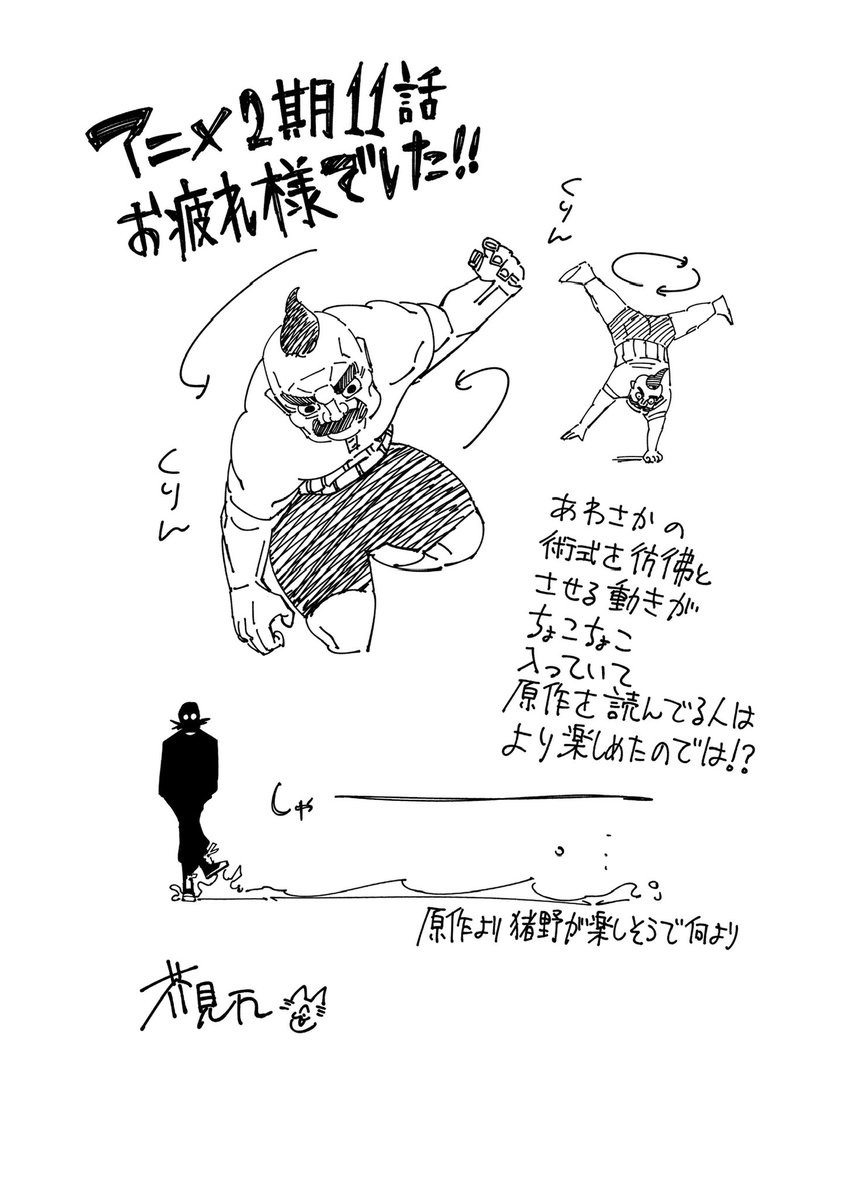 アニメ2期11話
お疲れ様でした!!
くりん
くりん
あわさかの
術式を彷彿と
させる動きが
ちょこちょこ
入っていて
原作を読んでる人は
より楽しめたのでは!?
しゃ――
原作より猪野が楽しそうで何より
芥見下々